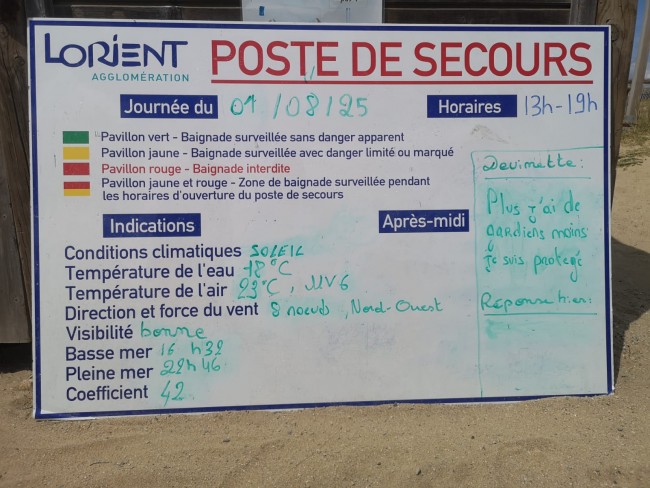 LORIENT
AGGLOMÉRATION
POSTE DE SECOURS
Journée du 01/08/25
Horaires 13h-19h
Pavillon vert - Baignade surveillée sans danger apparent
Pavillon jaune - Baignade surveillée avec danger limité ou marqué
Pavillon rouge - Baignade interdite
Pavillon jaune et rouge - Zone de baignade surveillée pendant
les horaires d'ouverture du poste de secours
Indications
Après-midi
Conditions climatiques SOLEIL
Température de l'eau 18°C
Température de l'air 23°C, UV6
Direction et force du vent 8 noeuds, Nord-Ouest
Visibilité bonne
Basse mer 16 h32
Pleine mer 22h46
Coefficient 42
Devinette:
Plus j'ai de
gardiens moins
je suis protégé
Réponse hier: